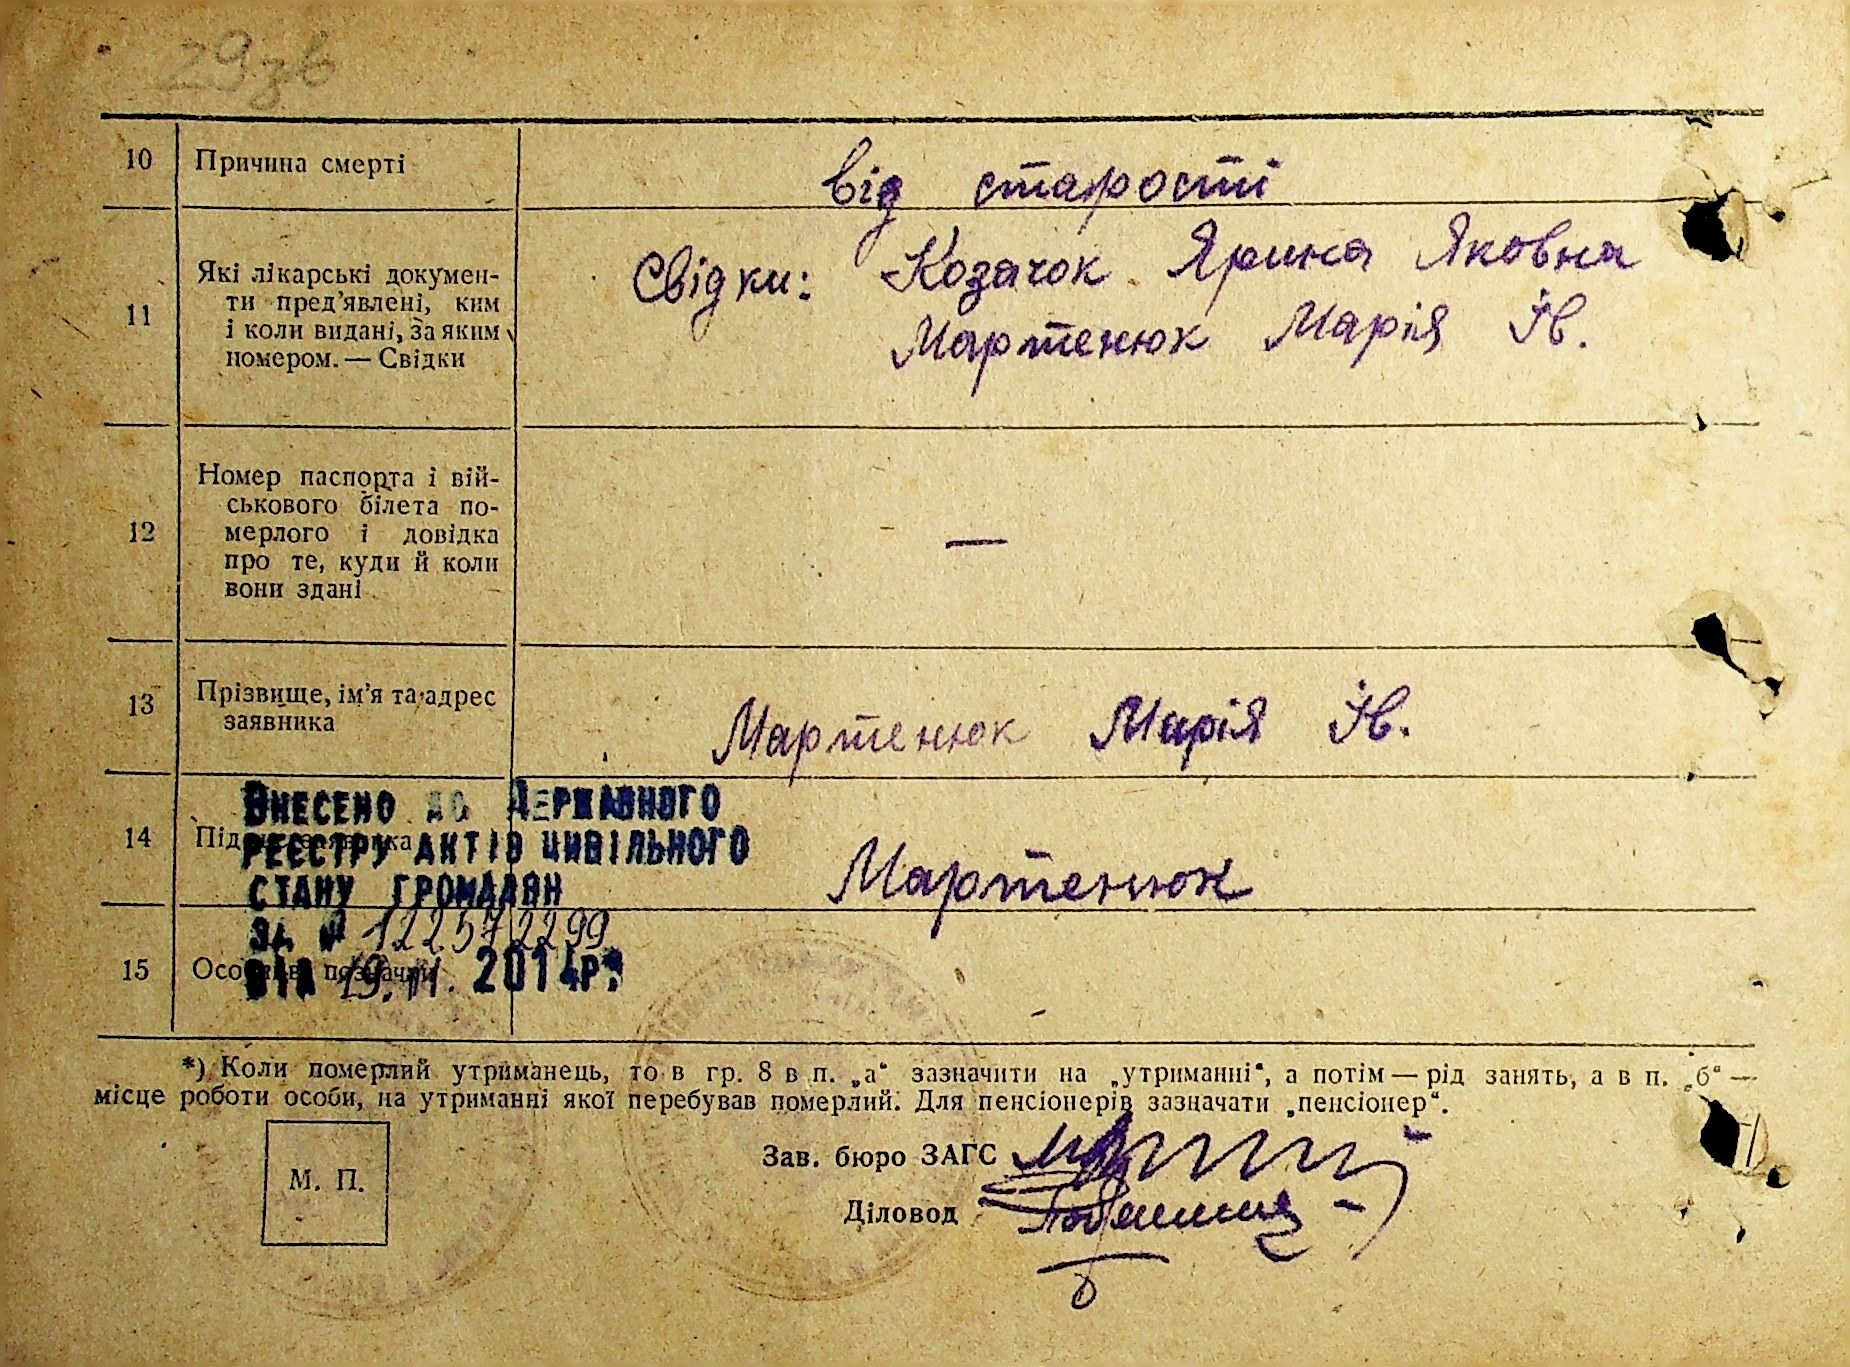 29зв
10 Причина смерті від старості
11 Які лікарські докумен-
ти пред’явлені, ким
і коли видані, за яким
номером. — Свідки
Свідки: Козачок Ярина Яковна
Мартенюк Марія Ів.
12 Номер паспорта і вій-
ськового білета по-
мерлого і довідка
про те, куди й коли
вони здані
—
13 Прізвище, ім’я та адрес
заявника
Мартенюк Марія Ів.
14 Підпис заявника Мартенюк
15 Особливі позначки
ВНЕСЕНО ДО ДЕРЖАВНОГО
РЕЄСТРУ АКТІВ ЦИВІЛЬНОГО
СТАНУ ГРОМАДЯН
ЗА № 122572299
ВІД 19.11. 2014Р.
*) Коли померлий утриманець, то в гр. 8 в п. „а“ зазначити на „утриманні“, а потім — рід занять, а в п. „б“ —
місце роботи особи, на утриманні якої перебував померлий. Для пенсіонерів зазначати „пенсіонер“.
М. П.
Зав. бюро ЗАГС
Діловод